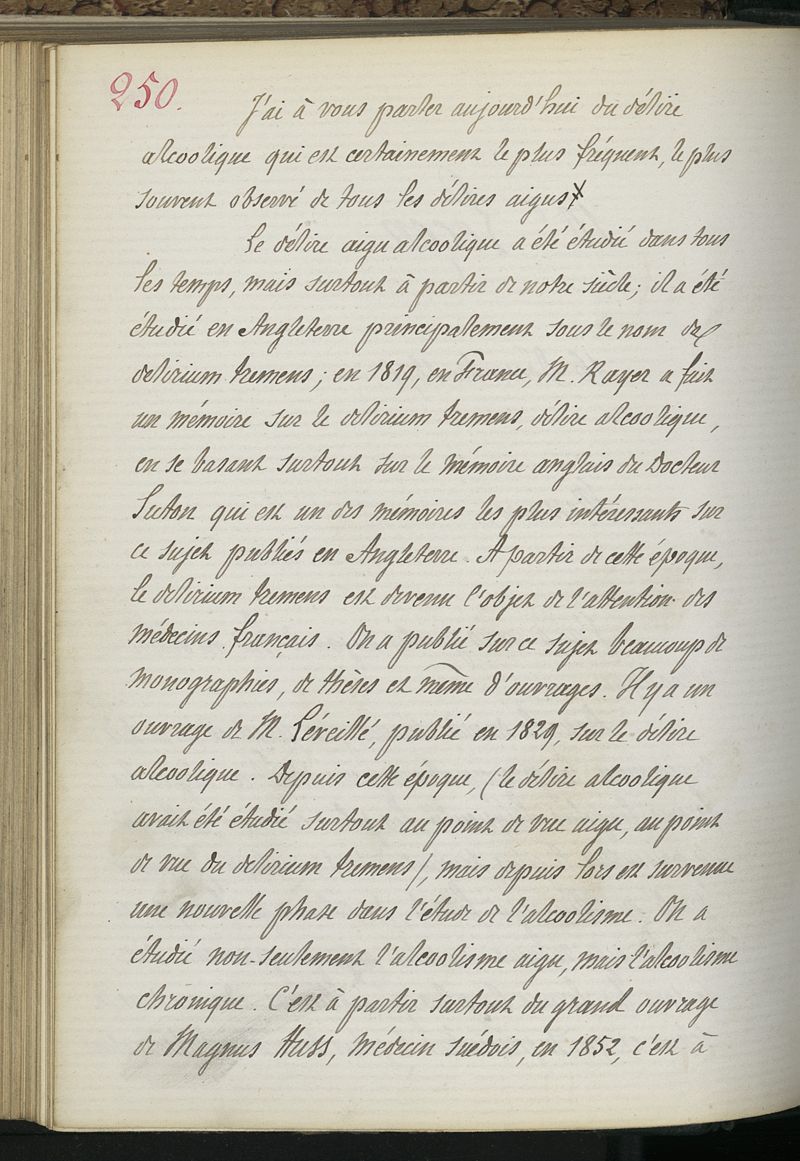 250.
J'ai à vous parler aujourd'hui du délire
alcoolique qui est certainement le plus fréquent, le plus
souvent observé de tous les délires aigus.
Le délire aigu alcoolique a été étudié dans tous
les temps, mais surtout à partir de notre siècle; il a été
étudié en Angleterre principalement sous le nom de
delirium tremens; en 1819, en France, M. Rayer a fait
un mémoire sur le delirium tremens, délire alcoolique,
en se basant surtout sur le mémoire anglais du Docteur
Suton qui est un des mémoires les plus intéressants sur
ce sujet publiés en Angleterre. A partir de cette époque,
le delirium tremens est devenu l'objet de l'attention des
médecins français. On a publié sur ce sujet beaucoup de
monographies, de thèses et même d'ouvrages. Il y a un
ouvrage de M. Léveillé, publié en 1829, sur le délire
alcoolique. Depuis cette époque, (le délire alcoolique
avait été étudié surtout au point de vue aigu, au point
de vue du delirium tremens), mais depuis lors est survenue
une nouvelle phase dans l'étude de l'alcoolisme. On a
étudié non-seulement l'alcoolisme aigu, mais l'alcoolisme
chronique. C'est à partir surtout du grand ouvrage
de Magnus Huss, médecin suédois, en 1852, c'est à